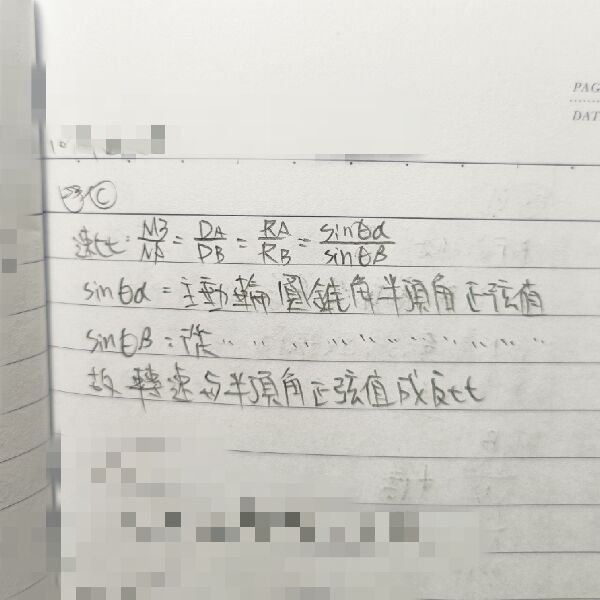 PAG
DAT
C
速比: NB/NA = DA/DB = RA/RB = sinθα/sinθβ
sinθα = 主動輪圓錐角半頂角正弦值
sinθβ = 從 〃 〃 〃 〃 〃 〃 〃 〃 〃 〃 〃
故轉速与半頂角正弦值成反比